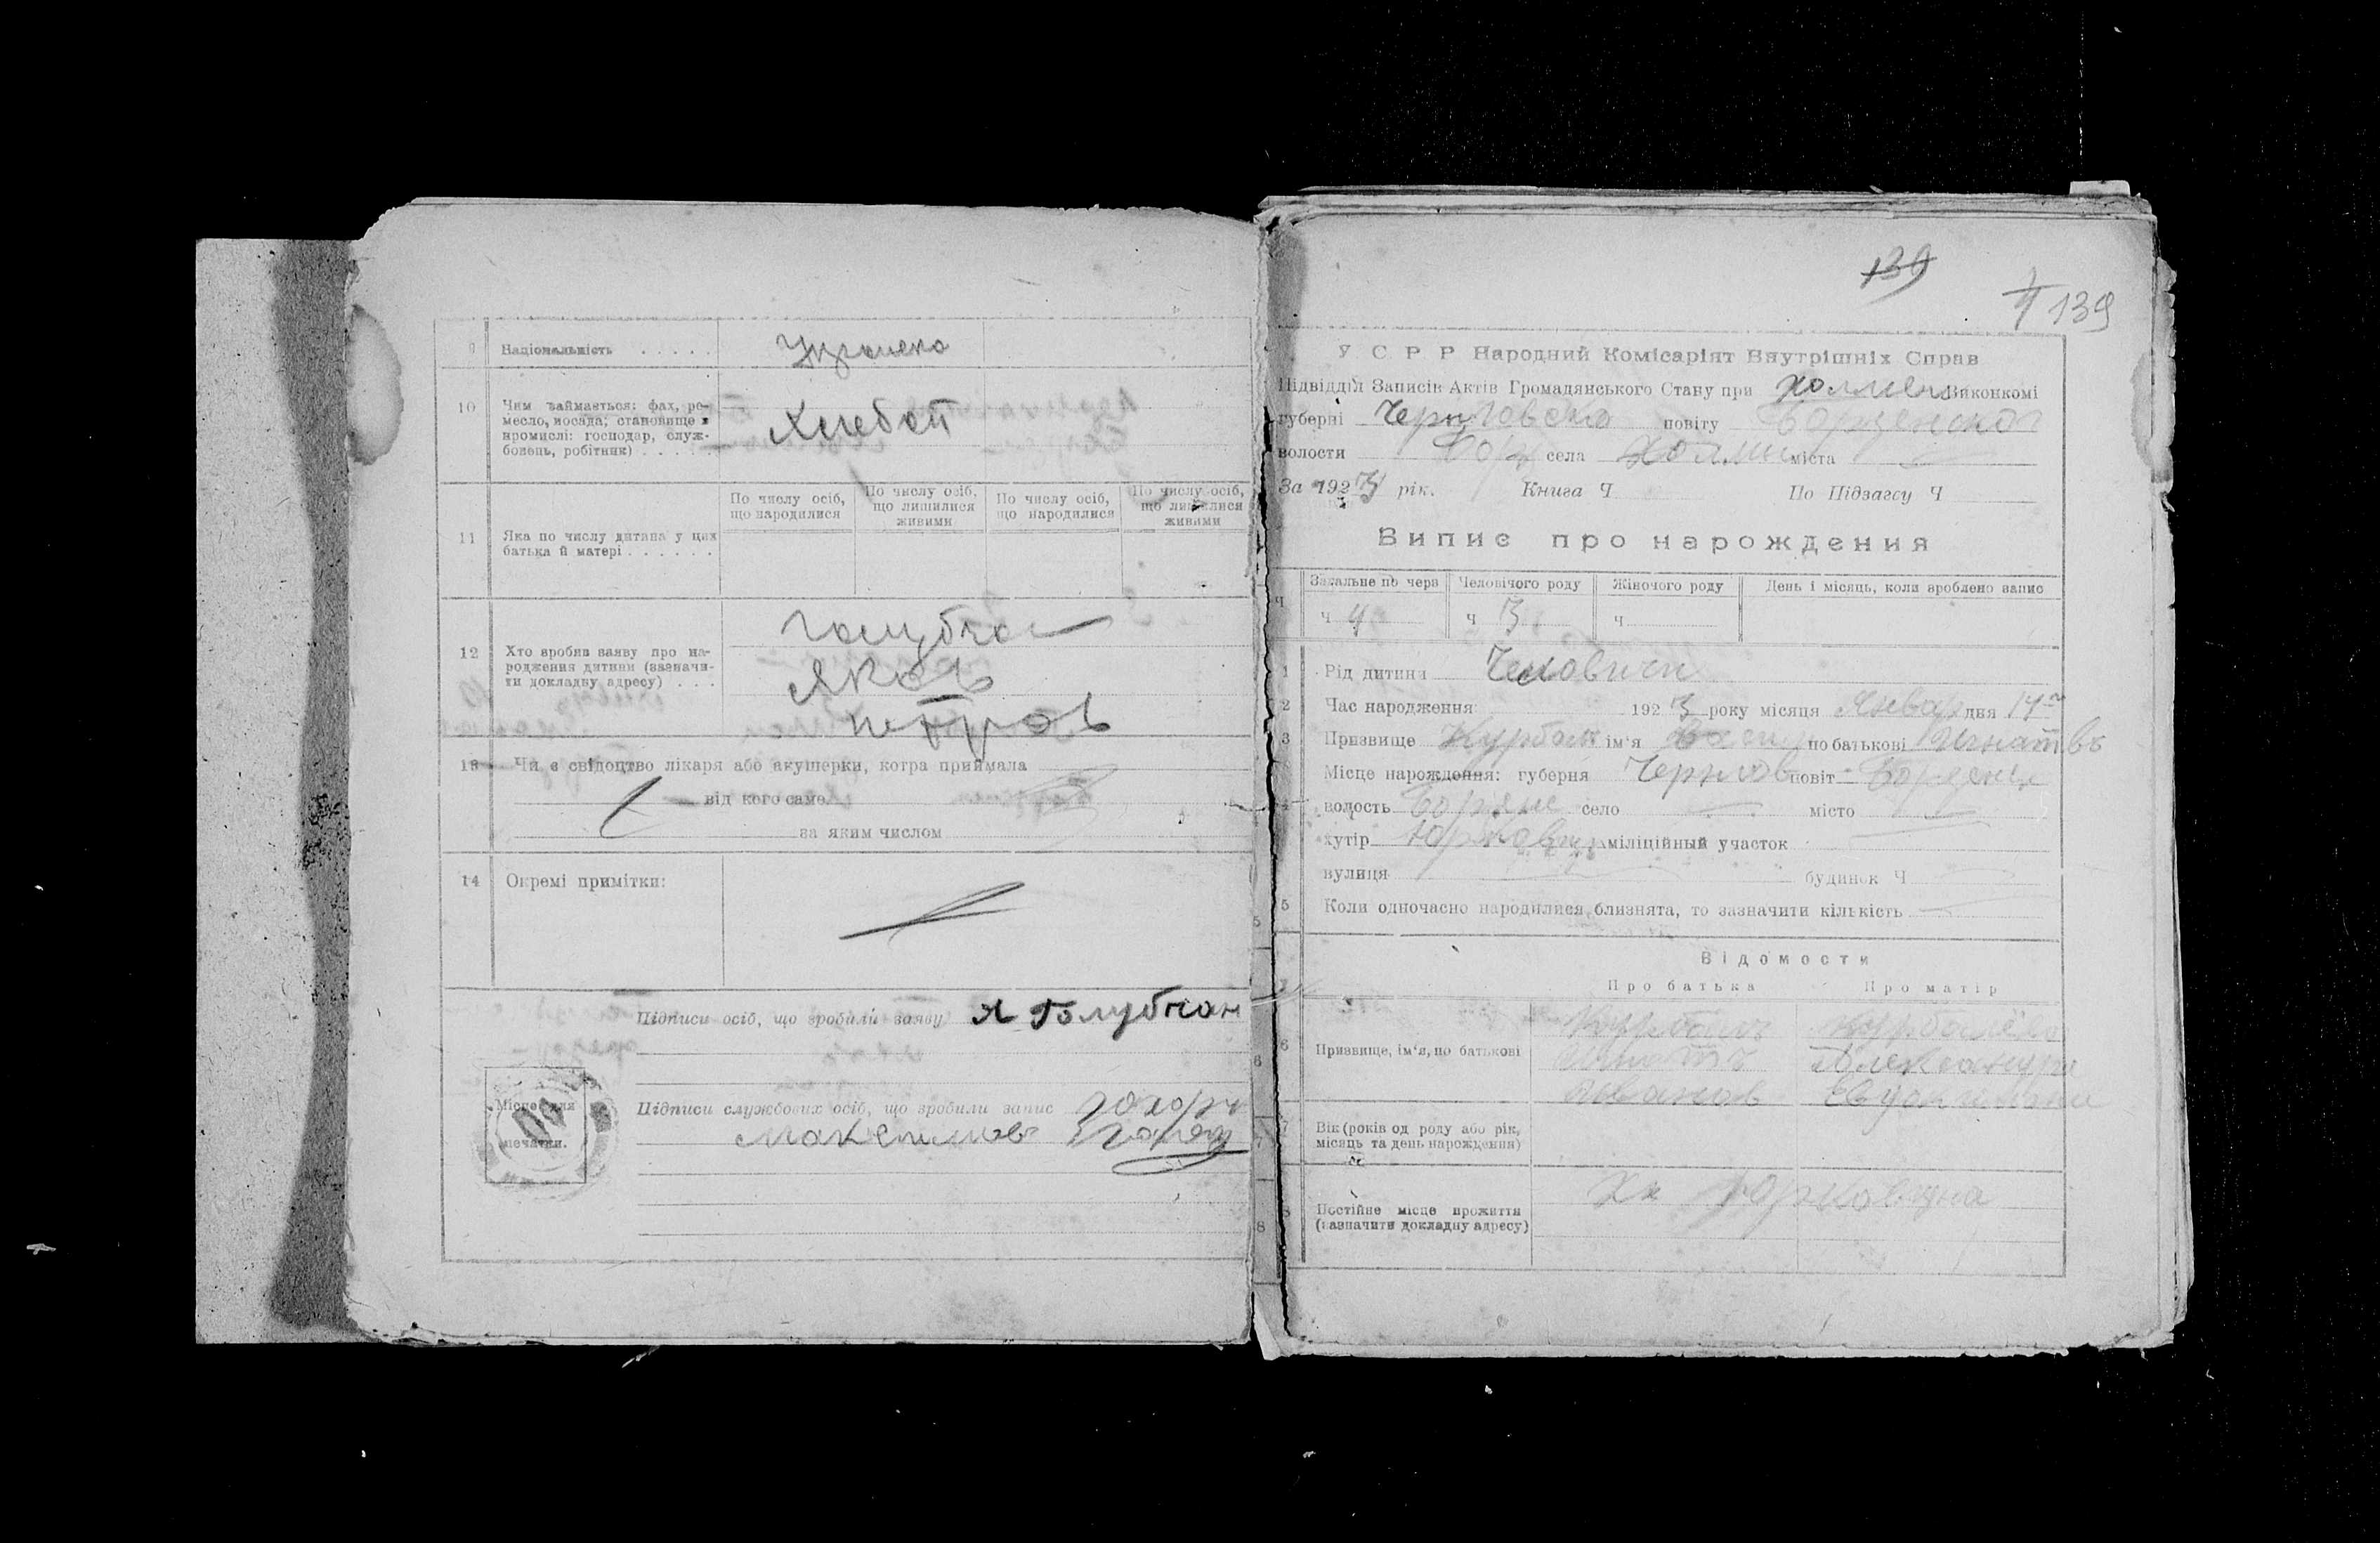 9 Національність . . . . .
10 Чим займається: фах, ре-
месло, посада; становище в
промислі: господар, служ-
бовець, робітник) . . . . .
Хлебоп
По числу осіб, що народилися
По числу осіб, що лишилися живими
По числу осіб, що народилися
По числу осіб, що лишилися живими
11 Яка по числу дитина у цих
батька й матері . . . . . .
12 Хто зробив заяву про на-
родження дитини (зазначи-
ти докладну адресу) . . .
Яков
Петров
13 Чи є свідоцтво лікаря або акушерки, котра приймала
від кого саме
за яким числом
14 Окремі примітки:
Підписи осіб, що зробили заяву Я Голубчан
Підписи службових осіб, що зробили запис
Місце для
печатки.
139
139
У С Р Р Народний Комісаріят Внутрішніх Справ
Підвідділ Записів Актів Громадянського Стану при Холмен Виконкомі
губерні Черниговско повіту Борзенског
волости Борз села Холми міста
За 1923 рік. Книга Ч По Підзагсу Ч
Випис про народждения
Ч
Загальне по черв
Человічого роду
Жіночого роду
День і місяць, коли зроблено запис
ч 4
ч 3
ч
1 Рід дитини Человичи
2 Час народження 1923 року місяця Январ дня 14
3 Призвище Курбал ім'я Васил по батькові Игнатвъ
4 Місце нарождення: губерня Черниов повіт Борзенск
волость Борзне село місто
хутір Юрковщ міліційный участок
вулиця будинок Ч
5 Коли одночасно народилися близнята, то зазначити кількість
Відомости
Про батька Про матір
6 Призвище, ім'я, по батькові
Иванов
Александра
7 Вік (років од роду або рік,
місяць та день нарождення)
8 Постійне місце прожиття
(зазначити докладну адресу)
Юрковщна